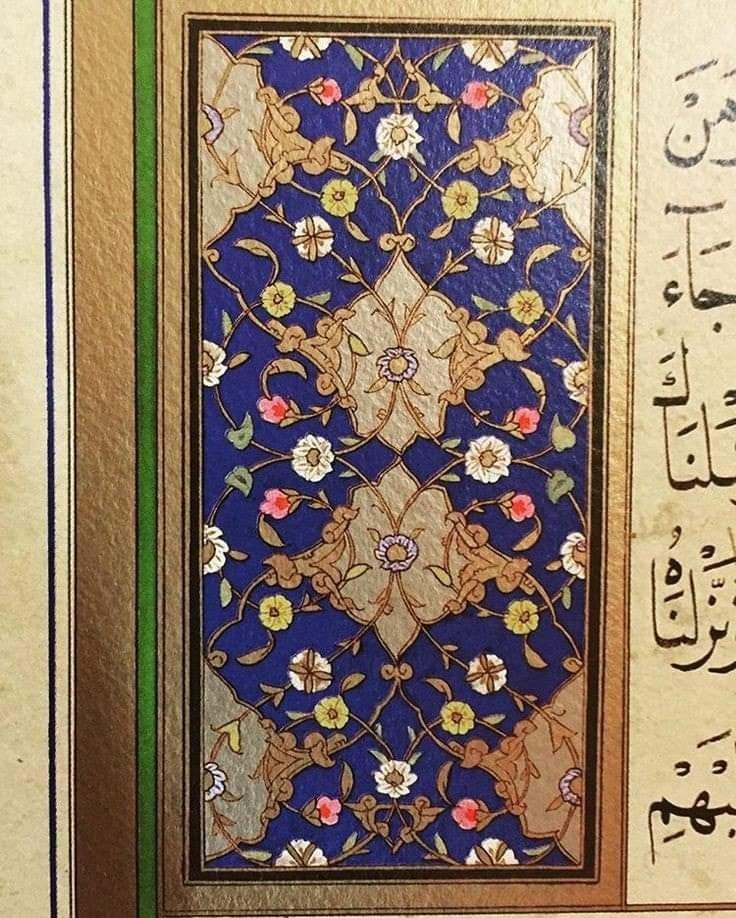 وَمَنْ
جَاءَ
سَلْنَاكَ
وَنَزَّلْنَاهُ
لَيْهِمْ